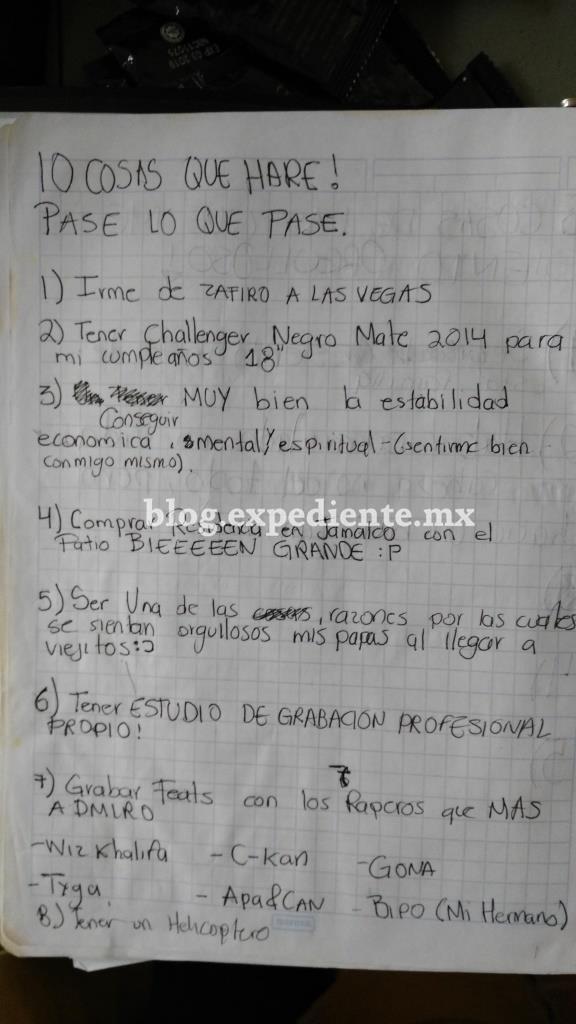 10 COSAS QUE HARE!
PASE LO QUE PASE.
1) Irme de ZAFIRO A LAS VEGAS
2) Tener Challenger Negro Mate 2014 para
mi cumpleaños 18"
3) MUY bien la estabilidad
Conseguir
economica, mental/espiritual-(sentirme bien
conmigo mismo).
blog.expediente.mx
4) Comprar Residencia en Jamaica con el
Patio BIEEEEEN GRANDE :P
5) Ser Una de las , razones por las cuales
se sientan orgullosos mis papas al llegar a
viejitos:
6) Tener ESTUDIO DE GRABACION PROFESIONAL
PROPIO!
7) Grabar Feats con los Raperos que MAS
ADMIRO
-Wiz Khalifa - C-Kan -GONA
-Tyga - Apa&CAN - BIPO (Mi Hermano)
8) Tener un Helicoptero